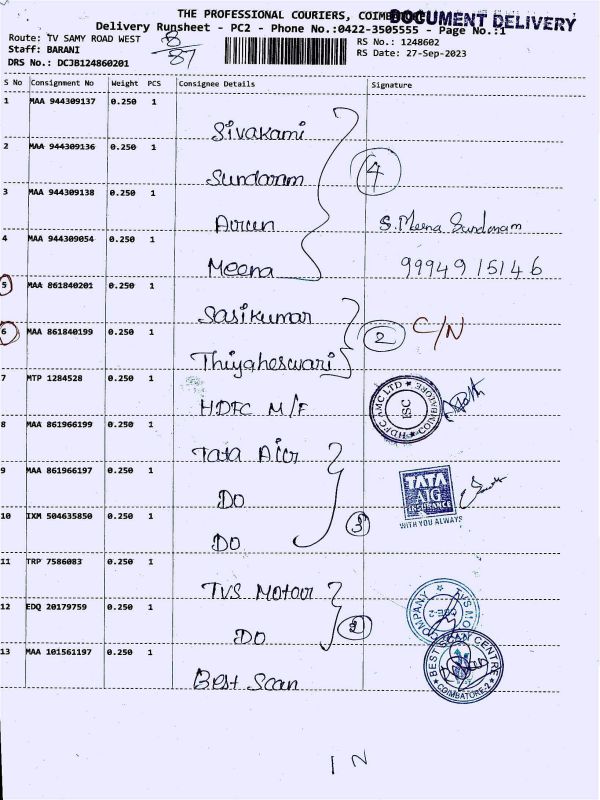 THE PROFESSIONAL COURIERS, COIMBATORE
DOCUMENT DELIVERY
Delivery Runsheet - PC2 - Phone No.:0422-3505555 - Page No.:1
Route: TV SAMY ROAD WEST
8/87
RS No.: 1248602
Staff: BARANI
RS Date: 27-Sep-2023
DRS No.: DCJB124860201
S No Consignment No Weight PCS Consignee Details Signature
1 MAA 944309137 0.250 1
Sivakami
2 MAA 944309136 0.250 1
Sundaram
4
3 MAA 944309138 0.250 1
Arrun S. Meena Sundaram
4 MAA 944309054 0.250 1
Meena 9994915146
5 MAA 861840201 0.250 1
Sasikumar
6 MAA 861840199 0.250 1
2 C/N
Thiyagheswari
7 MTP 1284528 0.250 1
HDFC M/F
HDFC AMC LTD ★ COIMBATORE ★
ISC
8 MAA 861966199 0.250 1
Tata AIG
9 MAA 861966197 0.250 1
DO
TATA
AIG
INSURANCE
WITH YOU ALWAYS
10 IXM 504635850 0.250 1
3
DO
11 TRP 7586083 0.250 1
TVS Motor
TVS MO
COMPANY ★
12 EDQ 20179759 0.250 1
2
DO
13 MAA 101561197 0.250 1
BEST SCAN CENTRE
★ COIMBATORE-2 ★
Best Scan
IN